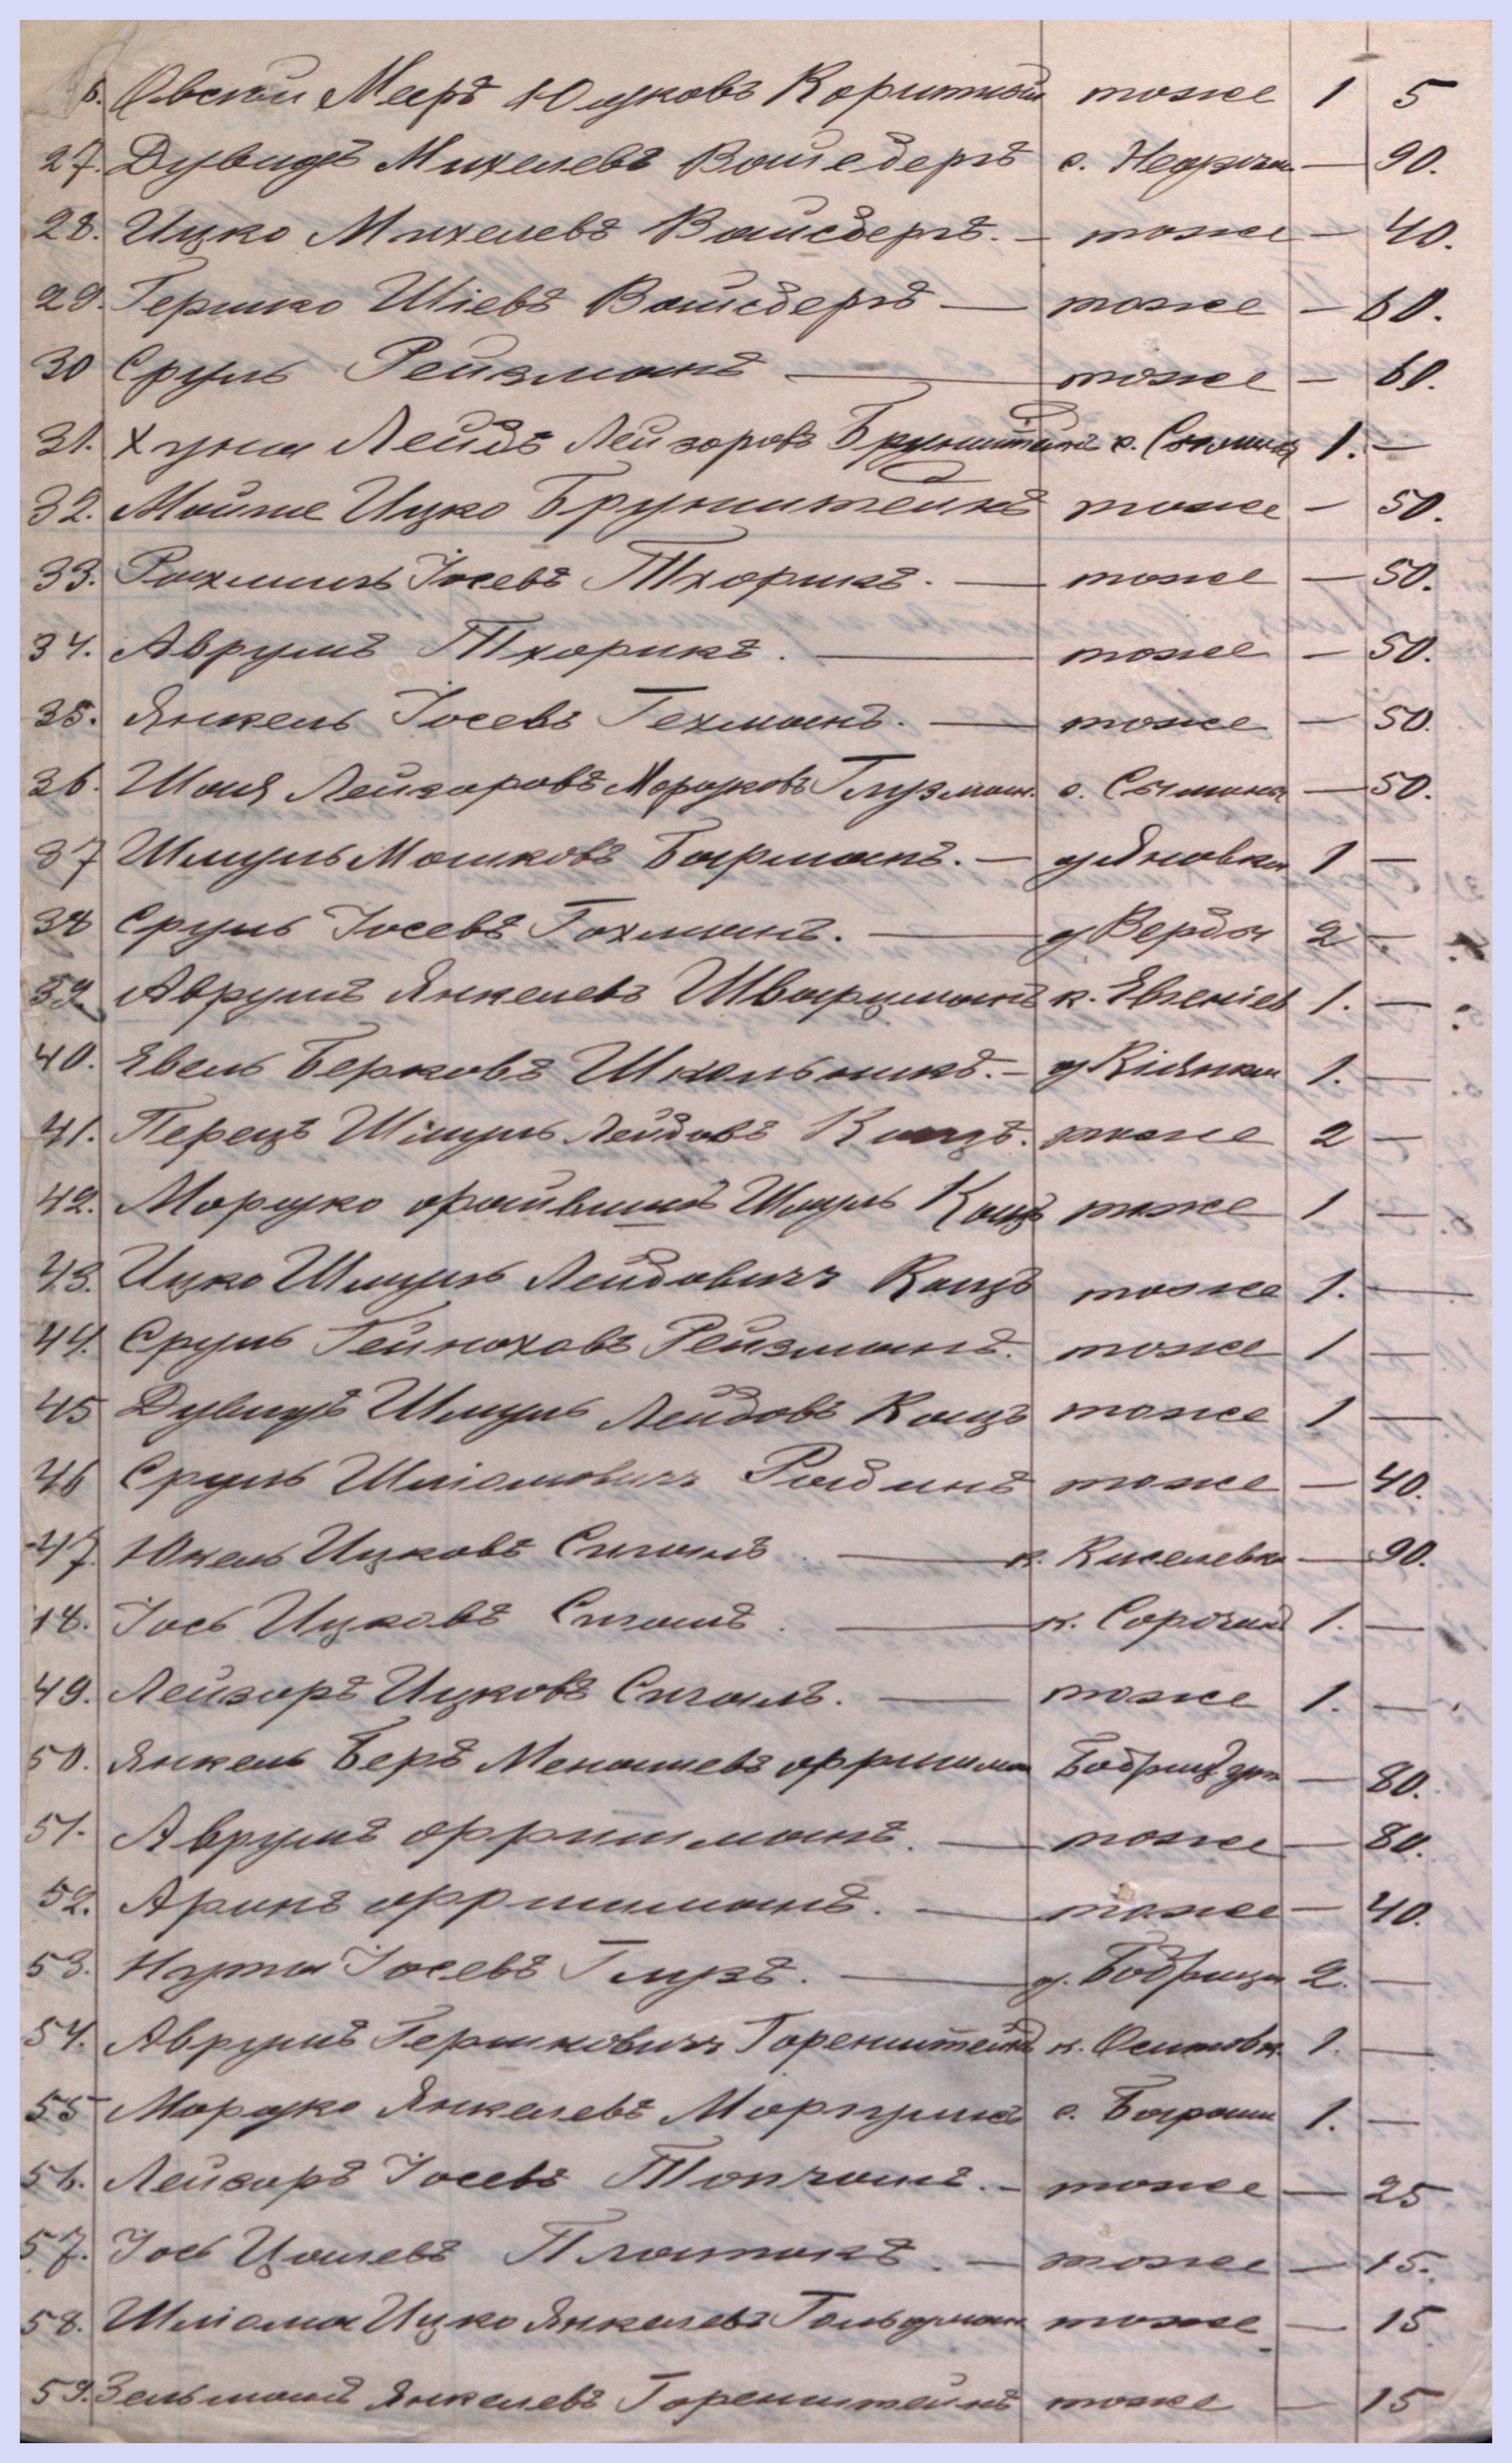 6. Овсей Мееръ Юдковъ Коритный тоже 1 5
27. Дувидъ Михелевъ Вайсберъ с. — 90.
28. Ицко Михелевъ Вайсберъ. — тоже — 40.
29. Гершко Шіевъ Вайсберъ — тоже — 60.
30 Сруль Рейзманъ — тоже — 60.
31. Хуна Лейбъ Лейзоровъ Брунштейнъ с. 1. —
32. Мойше Ицко Брунштейнъ тоже — 50.
33. Рахмиль Іосевъ Тхорикъ. — тоже — 50.
34. Аврумъ Тхорикъ. — тоже — 50.
35. Янкель Іосевъ Гехманъ. — тоже — 50.
36. Шая Лейзоровъ Мордковъ Глузман. с. — 50.
37 Шмуль Мошковъ Барманъ. — д Яновка 1 —
38 Сруль Іосевъ Гохманъ. — д Вербы 2 —
39 Аврумъ Янкелевъ Шварцманъ к. Евгеніев 1. —
40. Явель Берковъ Шкельникъ. — д Кіянка 1. —
41. Перецъ Шмуль Лейбовъ Кацъ. тоже 2 —
42. Мордко Файвишъ Шмуль Кацъ тоже 1 —
43. Ицко Шмуль Лейбовичъ Кацъ тоже 1. —
44. Сруль Гейноховъ Рейзманъ. тоже 1 —
45 Дувидъ Шмуль Лейбовъ Кацъ тоже 1 —
46 Сруль Шліомовичъ Рабинъ тоже — 40.
47. Юкель Ицковъ Сигалъ — к. Киселевка — 90.
48. Іось Ицковъ Сигалъ. — к. Сорочин 1. —
49. Лейзоръ Ицковъ Сигалъ. — тоже 1. —
50. Янкель Беръ Менашевъ Фришман — 80.
51. Аврумъ Фришманъ. — тоже — 80.
52. Аронъ Фришманъ. — тоже — 40.
53. Нута Іосевъ Глузъ. — д. Бобрица 2. —
54. Аврумъ Гершковичъ Горенштейнъ к. Осиповк. 1. —
55 Мордко Янкелевъ Моргулисъ с. Бараши 1. —
56. Лейзоръ Іосевъ Топчанъ. — тоже — 25
57. Іось Цалевъ Платокъ. — тоже — 15.
58. Шліома Ицко Янкелевъ Гольдман тоже — 15
59. Зельманъ Янкелевъ Горенштейнъ тоже — 15